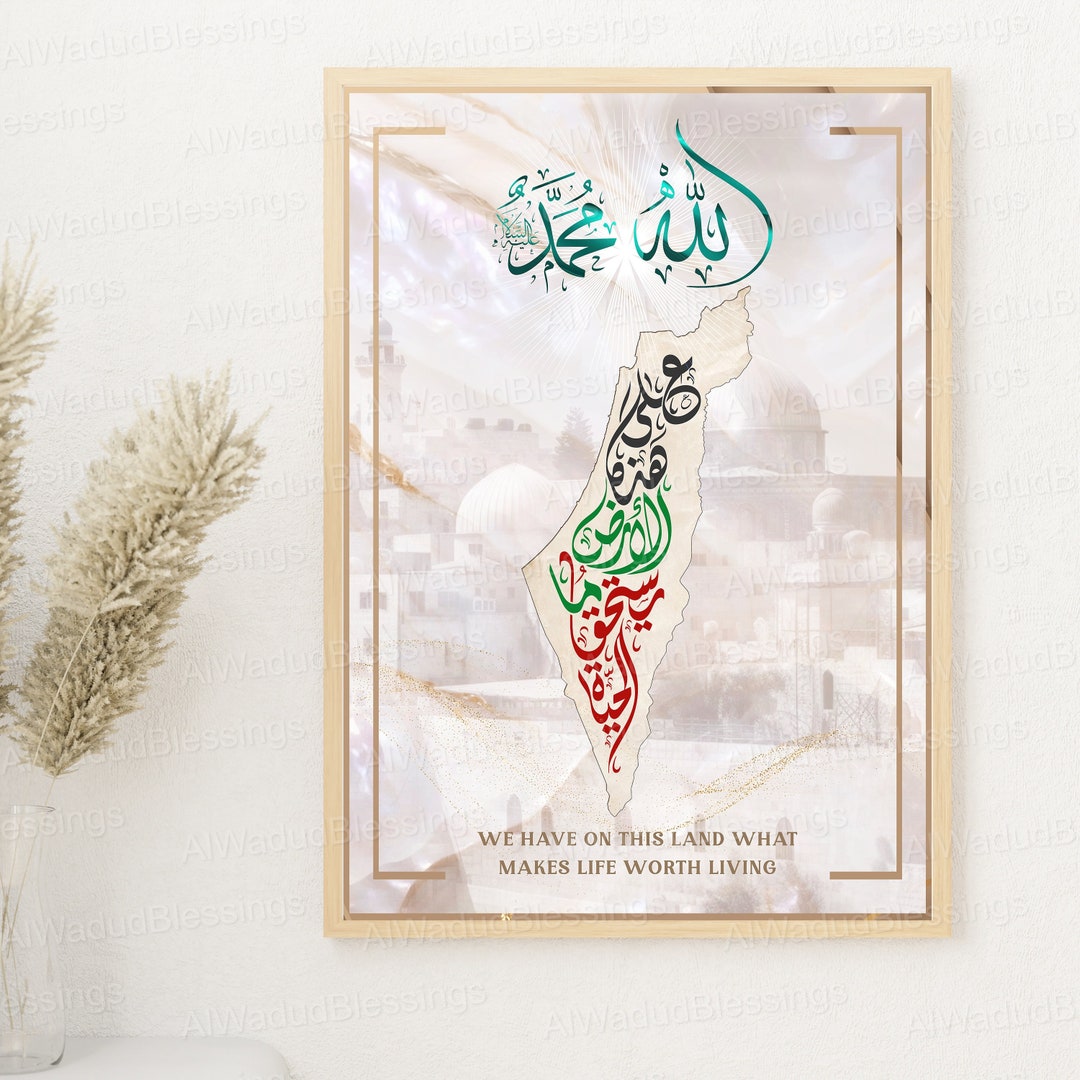 الله
مُحَمَّدٌ
عليه السلام
على
هذه
الأرض
ما يستحق
الحياة
WE HAVE ON THIS LAND WHAT
MAKES LIFE WORTH LIVING
AlWadudBlessings